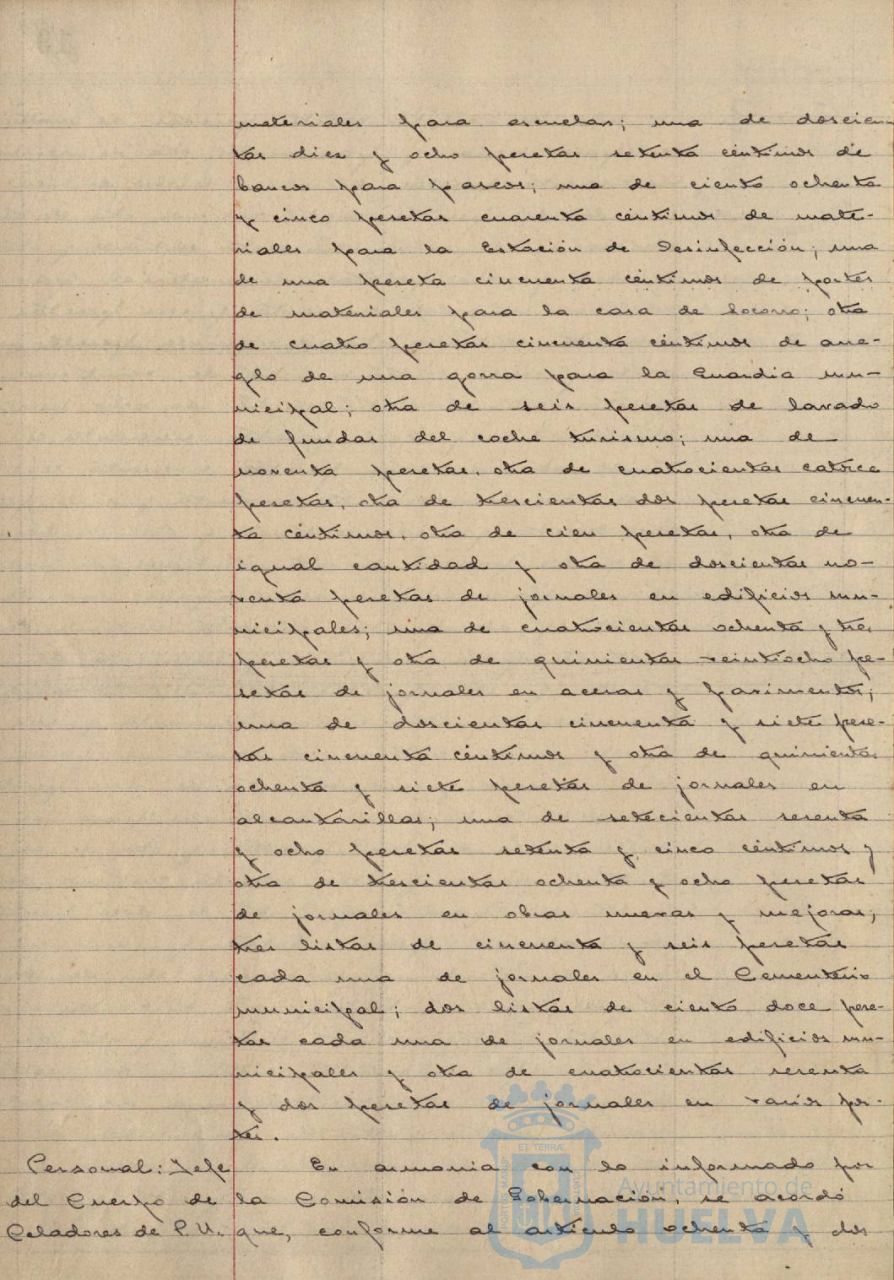 materiales para escuelas; una de doscien-
tas diez y ocho pesetas setenta céntimos de
bancos para paseos; una de ciento ochenta
y cinco pesetas cuarenta céntimos de mate-
riales para la Estación de Desinfección; una
de una peseta cincuenta céntimos de portes
de materiales para la casa de Socorro; otra
de cuatro pesetas cincuenta céntimos de arre-
glo de una gorra para la Guardia mu-
nicipal; otra de seis pesetas de lavado
de fundas del coche turismo; una de
noventa pesetas, otra de cuatrocientas catorce
pesetas, otra de trescientas dos pesetas cincuen-
ta céntimos, otra de cien pesetas, otra de
igual cantidad y otra de doscientas no-
venta pesetas de jornales en edificios mu-
nicipales; una de cuatrocientas ochenta y tres
pesetas y otra de quinientas veintiocho pe-
setas de jornales en aceras y pavimentos;
una de doscientas cincuenta y siete pese-
tas cincuenta céntimos y otra de quinientas
ochenta y siete pesetas de jornales en
alcantarillas; una de setecientas sesenta
y ocho pesetas setenta y cinco céntimos y
otra de trescientas ochenta y ocho pesetas
de jornales en obras nuevas y mejoras;
tres listas de cincuenta y seis pesetas
cada una de jornales en el Cementerio
municipal; dos listas de ciento doce pese-
tas cada una de jornales en edificios mu-
nicipales y otra de cuatrocientas sesenta
y dos pesetas de jornales en varios por-
tes.
Personal: Jefe
del Cuerpo de
Celadores de P. U.
En armonia con lo informado por
la Comisión de Gobernación, se acordó
que, conforme al artículo ochenta y dos
Ayuntamiento de
HUELVA